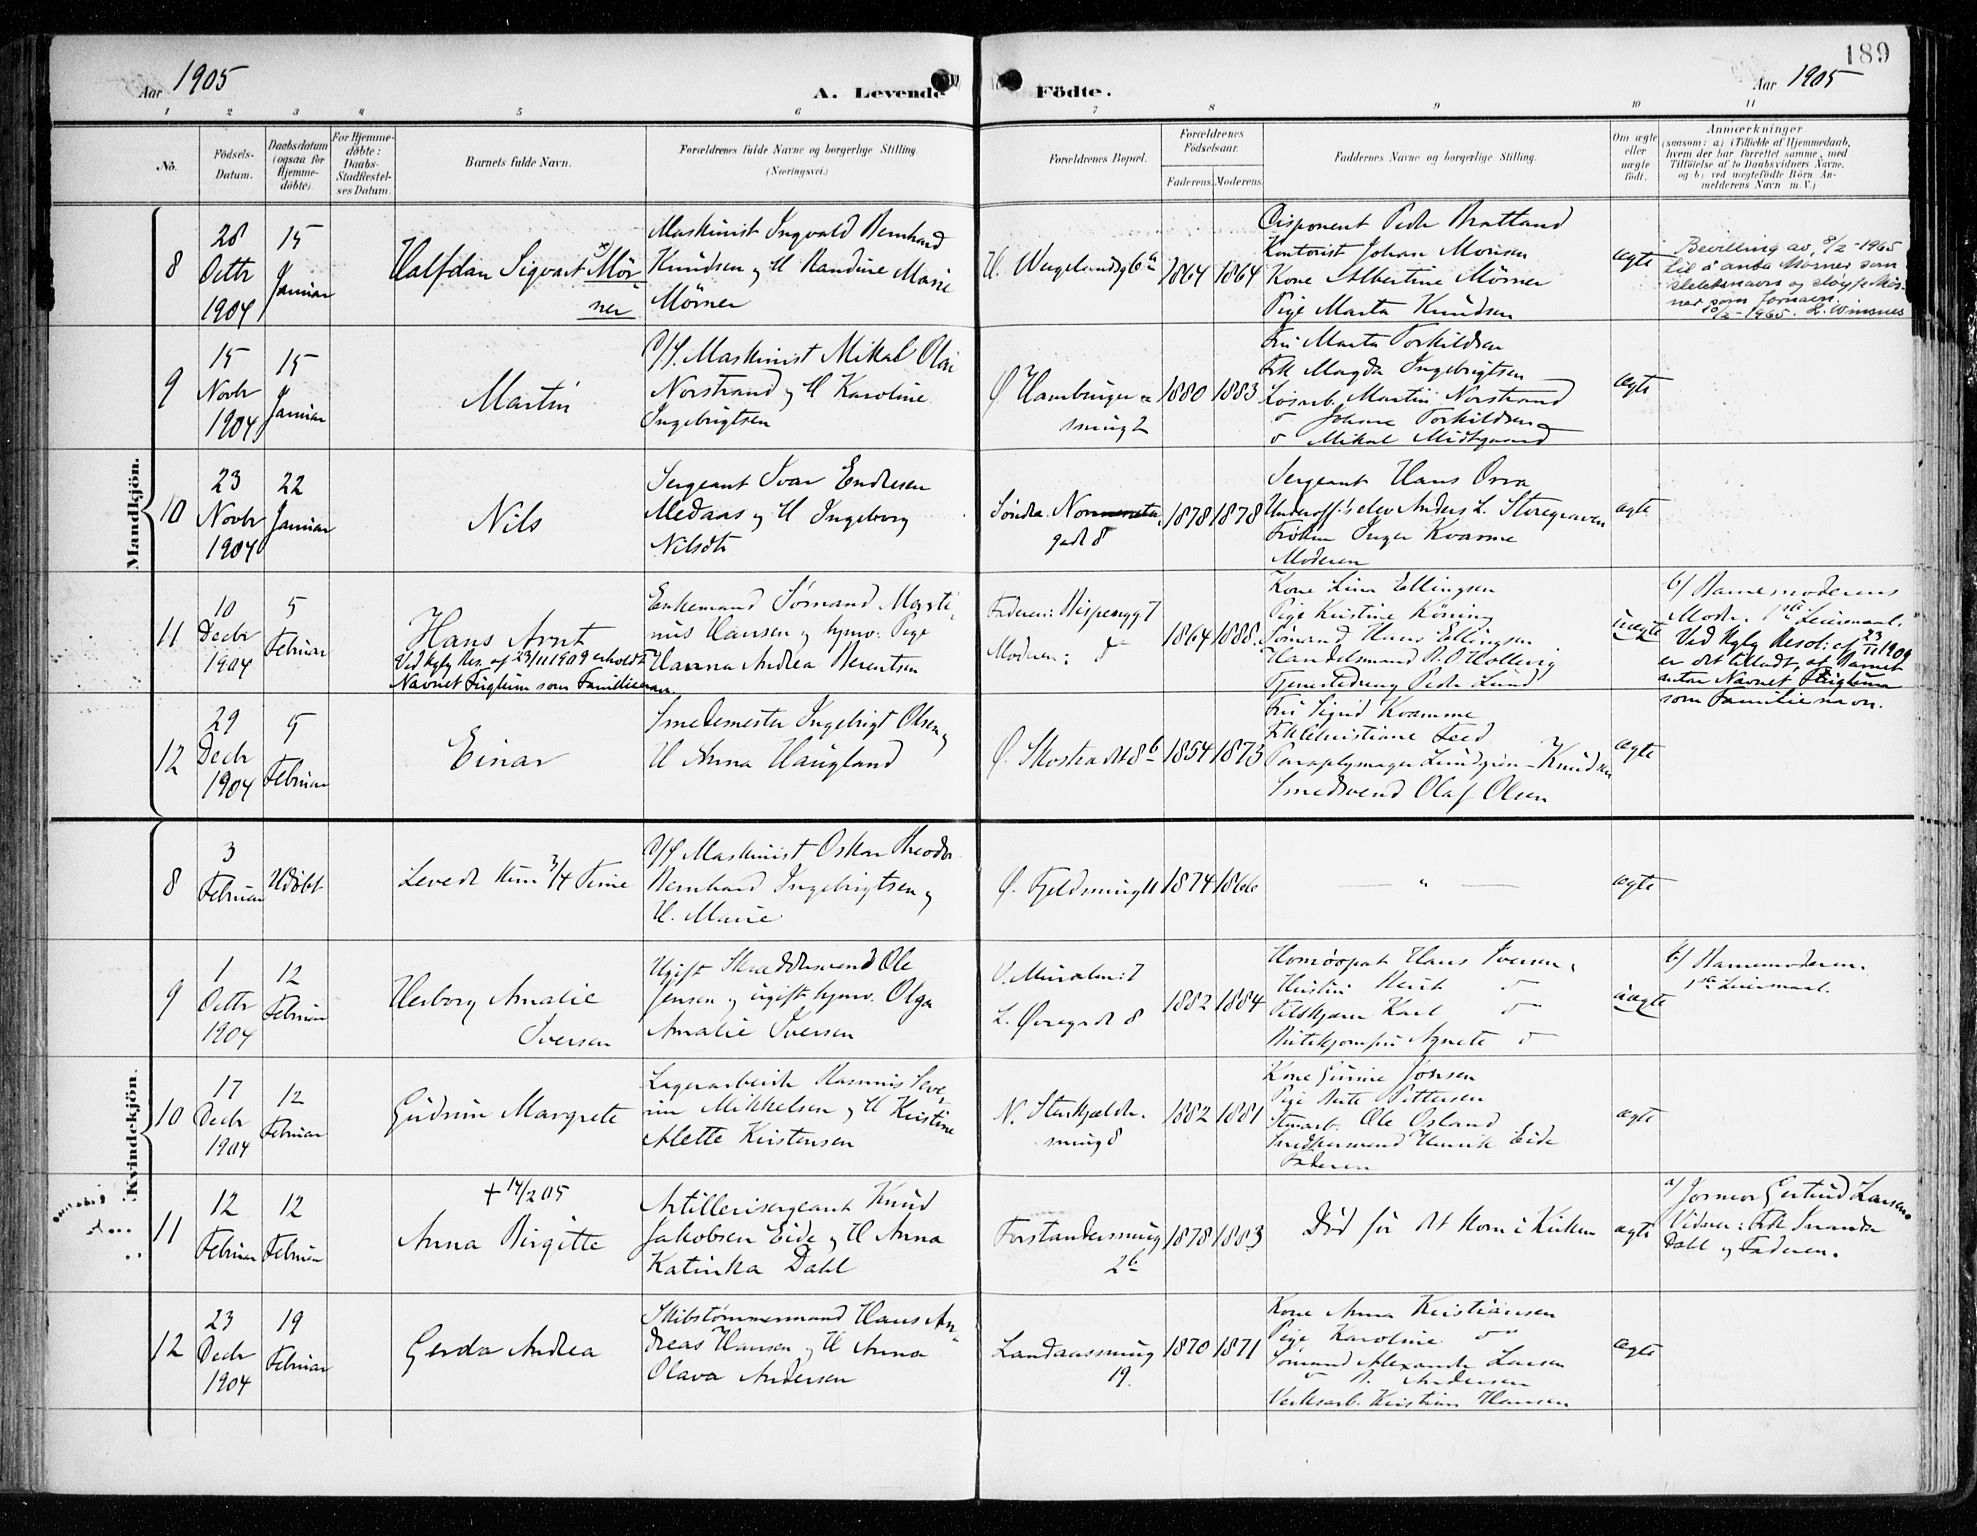 189
Aar 1905
A. Levende Födte.
Aar 1905
1 2 3 4 5 6 7 8 9 10 11
No.
Födsels-
Datum.
Daabsdatum
(ogsaa for
Hjemme-
döbte).
For Hjemme-
döbte:
Daabs-
Stadfæstel-
ses Datum.
Barnets fulde Navn.
Forældrenes fulde Navne og borgerlige Stilling
(Næringsvei.)
Forældrenes Bopæl.
Forældrenes
Födselsaar.
Faderens. Moderens.
Faddernes Navne og borgerlige Stilling.
Om ægte
eller
uægte
födt.
Anmærkninger
(saasom: a) i Tilfælde af Hjemmedaab,
hvem der har forrettet samme, med
Tilföielse af to Daabsvidners Navne.
og b) ved uægtefödte Börn An-
melderens Navn m. V.)
Mandkjön.
8
28
Octbr
1904
15
Januar
Halfdan Sigvart Mör-
ner
Maskinist Ingvald Bernhard
Knudsen og H Randine Marie
Mörner
H. Wergelandsg 6a
1864 1864
Disponent Peder Bratland
Kontorist Johan Monsen
Kone Albertine Mörner
Pige Marta Knudsen
ægte
Bevilling av 8/2-1965
til å anta Mørner som
slektsnavn og sløyfe Mør-
ner som fornavn.
10/2-1965. L. Winsnes
9
15
Novbr
1904
15
Januar
Martin
D/S. Maskinist Mikal Olai
Norstrand og H Karoline
Ingebrigtsen
Ø Hamburger
smug 2
1880 1883
Fru Marta Torkildsen
Frk Magda Ingebrigtsen
Løsarb. Martin Norstrand
do Johan Torkildsen
do Mikal Midtgaard
ægte
10
23
Novbr
1904
22
Januar
Nils
Sergeant Ivar Endresen
Medaas og H Ingeborg
Nilsdtr
Søndre
gade 8
1878 1878
Sergeant Hans Orra
Underoff.s elev Anders L. Storegraven
Frøken Inger Kvamme
Moderen
ægte
11
10
Decbr
1904
5
Februar
Hans Arnt
Ved Kgly Res. af 23/11 1909 erholdt
Navnet Fuglum som Familienavn.
Enkemand Sømand Marti-
nus Hansen og hjmv. Pige
Hanna Andrea Berentsen
Faderen: Hispengg 7
Moderen: do
1864 1888
Kone Lina Ellingsen
Pige Kristine Köning
Sømand Hans Ellingsen
Handelsmand
Tjenestedreng Peder Lund
uægte
b) Barnemoderens
Moder. 1ste Leiermaal.
Ved Kgly Resol: af 23/11 1909
er det tilladt, af Barnet
antar Navnet Fuglum
som Familienavn.
12
29
Decbr
1904
5
Februar
Einar
Smedemester Ingebrigt Olsen og
H Anna Haugland
Ø. Skostrædet 8b
1854 1875
Fru Sigrid Kvamme
Frk Christiane Leed
Paraplymager Lundgren-Knudsen
Smedsvend Olaf Olsen
ægte
Kvindekjön.
8
3
Februar
Udöbt
Levede kun 3/4 Time
D/S Maskinist Oskar Theodor
Bernhard Ingebrigtsen og
H. Marie
Ø. Fjeldsmug 11
1874 1866
— " —
ægte
9
1
Octbr
1904
12
Februar
Herborg Amalie
Iversen
Ugift Skræddersvend Ole
Jensen og ugift hjmv. Olga
Amalie Iversen
V. Muralm: 7
L. Øvregade 8
1882 1884
Homöopat Hans Iversen,
Hustru Berit do
Pilskjærer Karl do
Butikjomfru Agnete do
uægte
b) Barnemoderen.
1ste Leiermaal.
10
17
Decbr
1904
12
Februar
Gudrun Margrete
Lagerarbeider Rasmus Seve-
rin Mikkelsen og H Kristine
Alette Kirstensen
N. Stenkjælder-
smug 8
1882 1881
Kone Gurine Jonsen
Pige Brite Pettersen
Stuearb. Ole Osland
Smedsvend Henrik Eide
Faderen
ægte
11
12
Februar
12
Februar
+ 14/2 05
Anna Birgitte
Artillerisergeant Knud
Jakobsen Eide og H Anna
Katinka Dahl
Forstandersmug
2b
1878 1883
Död för det kom i Kirken
ægte
a) Jormor Gertrud Larsen.
Vidner: Frk Svanda
Dahl og Faderen.
12
23
Decbr
1904
19
Februar
Gerda Andrea
Skibstømmermand Hans An-
dreas Hansen og H Anna
Olava Andersen
Landaassmug
19.
1870 1871
Kone Anna Kristiansen
Pige Karoline do
Sømand Alexander Larsen
do B. Andersen
Verksarb. Kristian Hansen
ægte